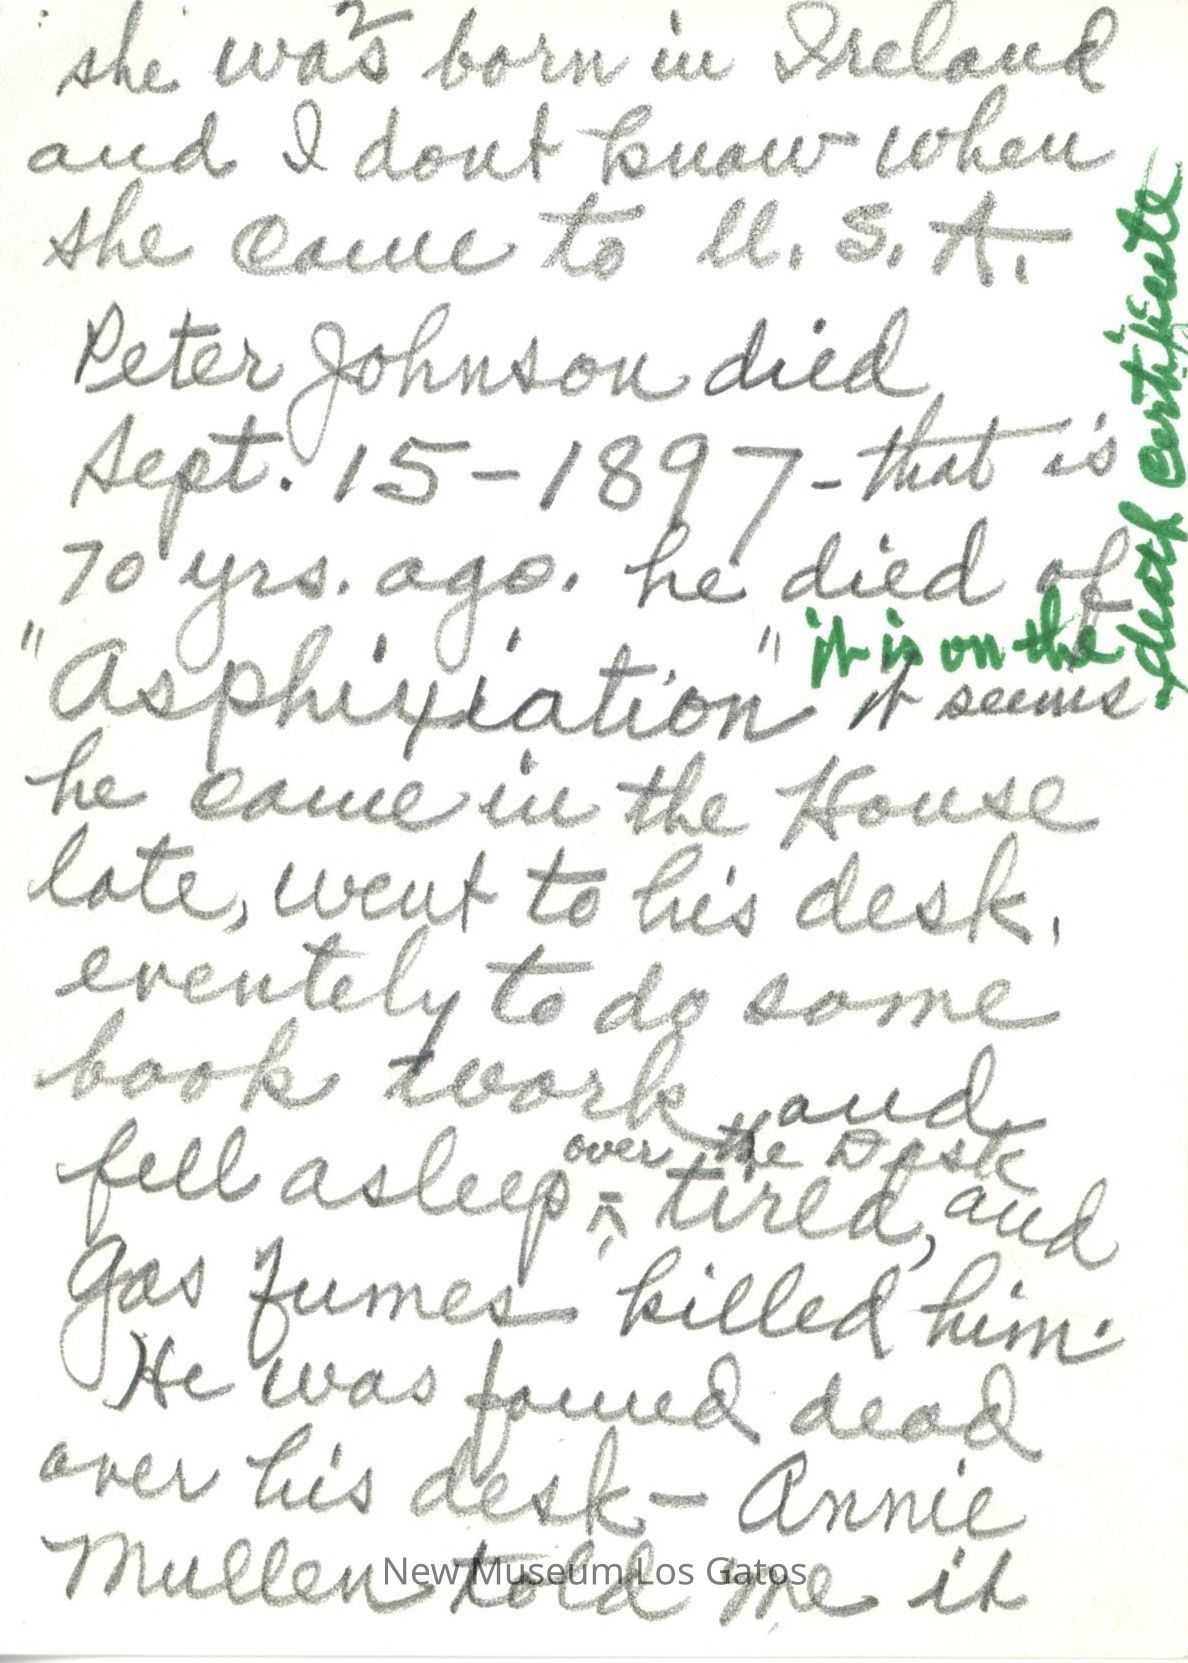 she was born in Ireland
and I dont know when
she came to U.S.A.
Peter Johnson died
Sept. 15-1897 - that is
70 yrs. ago. he died of
it is on the death certificate
"Asphixiation" it seems
he came in the House
late, went to his desk,
eventely to do some
book work and
over the Desk
fell asleep, tired, and
gas fumes killed him.
He was found dead
over his desk - Annie
Mullen told me it
New Museum Los Gatos